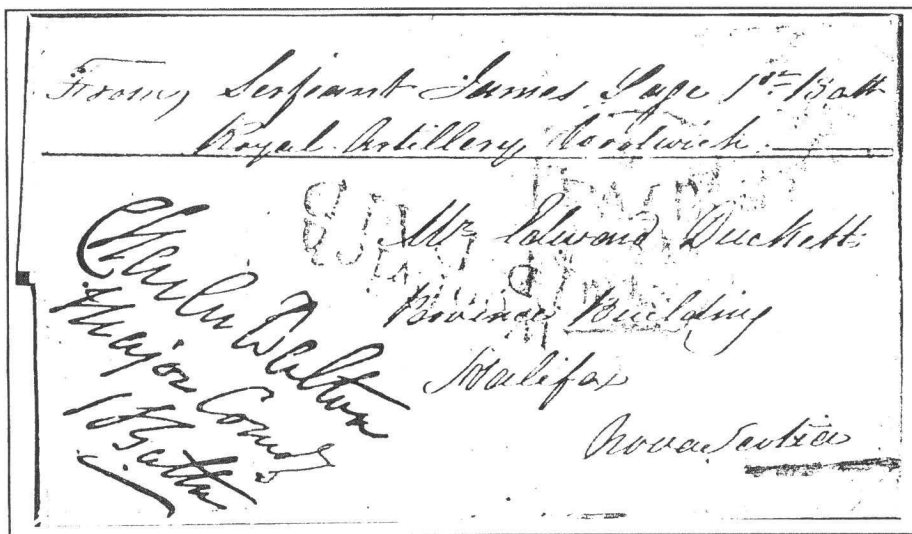 From, Serjeant James Page 1st Batt
Royal Artillery Woolwich
Mr Edward Duckett
Province Building
Halifax
Nova Scotia
Charles Dalton
Major Comdg
1st Battn